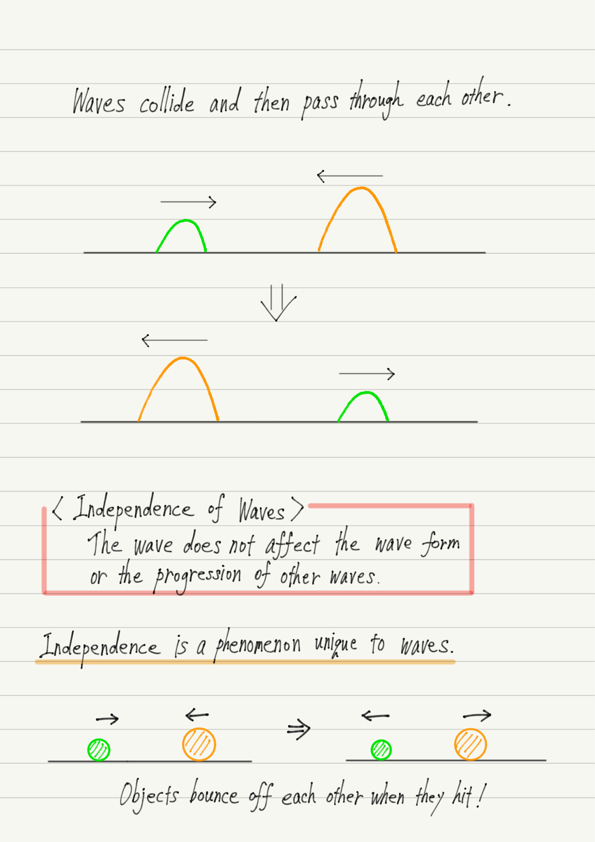 Waves collide and then pass through each other.
〈 Independence of Waves 〉
The wave does not affect the wave form
or the progression of other waves.
Independence is a phenomenon unique to waves.
Objects bounce off each other when they hit!